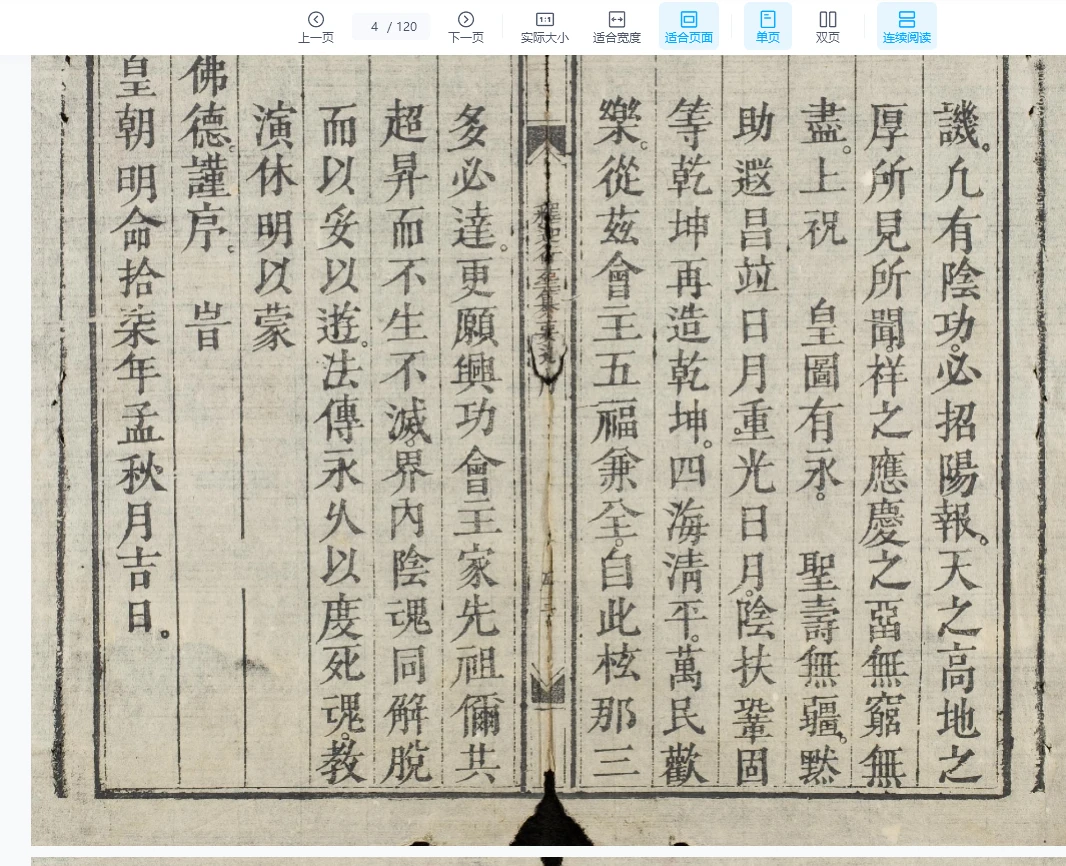 上一页 4 / 120 下一页 实际大小 适合宽度 适合页面 单页 双页 连续阅读
譏。凢有陰功。必招陽報。天之高地之
厚所見所聞。祥之應慶之畱無窮無
盡。上祝 皇圖有永。 聖壽無疆。黙
助遐昌竝日月重光日月。陰扶鞏固
等乾坤再造乾坤。四海清平。萬民歡
樂。從茲會主五福兼全。自此枟那三
多必達。更願興功會主家先祖彌共
超昇而不生不滅。界內陰魂同解脫
而以妥以遊。法傳永久以度死魂。教
演休明以蒙
佛德。謹序。 旹
皇朝明命拾柒年孟秋月吉日。